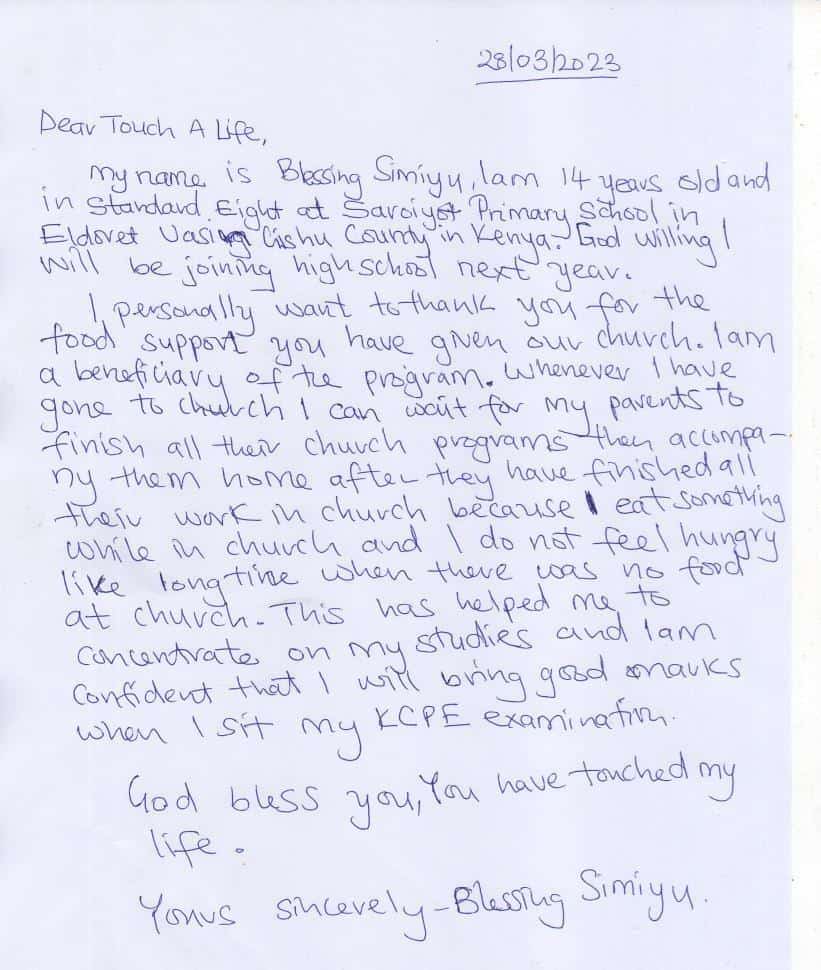 28/03/2023
Dear Touch A Life,
My name is Blessing Simiyu, I am 14 years old and
in Standard Eight at Saroiyot Primary School in
Eldoret Uasin Gishu County in Kenya. God willing I
will be joining highschool next year.
I, personally want to thank you for the
food support you have given our church. I am
a beneficiary of the program. Whenever I have
gone to church I can wait for my parents to
finish all their church programs then accompa-
ny them home after they have finished all
their work in church because I eat something
while in church and I do not feel hungry
like longtime when there was no food
at church. This has helped me to
concentrate on my studies and I am
confident that I will bring good marks
when I sit my KCPE examination.
God bless you, You have touched my
life.
Yours sincerely - Blessing Simiyu.